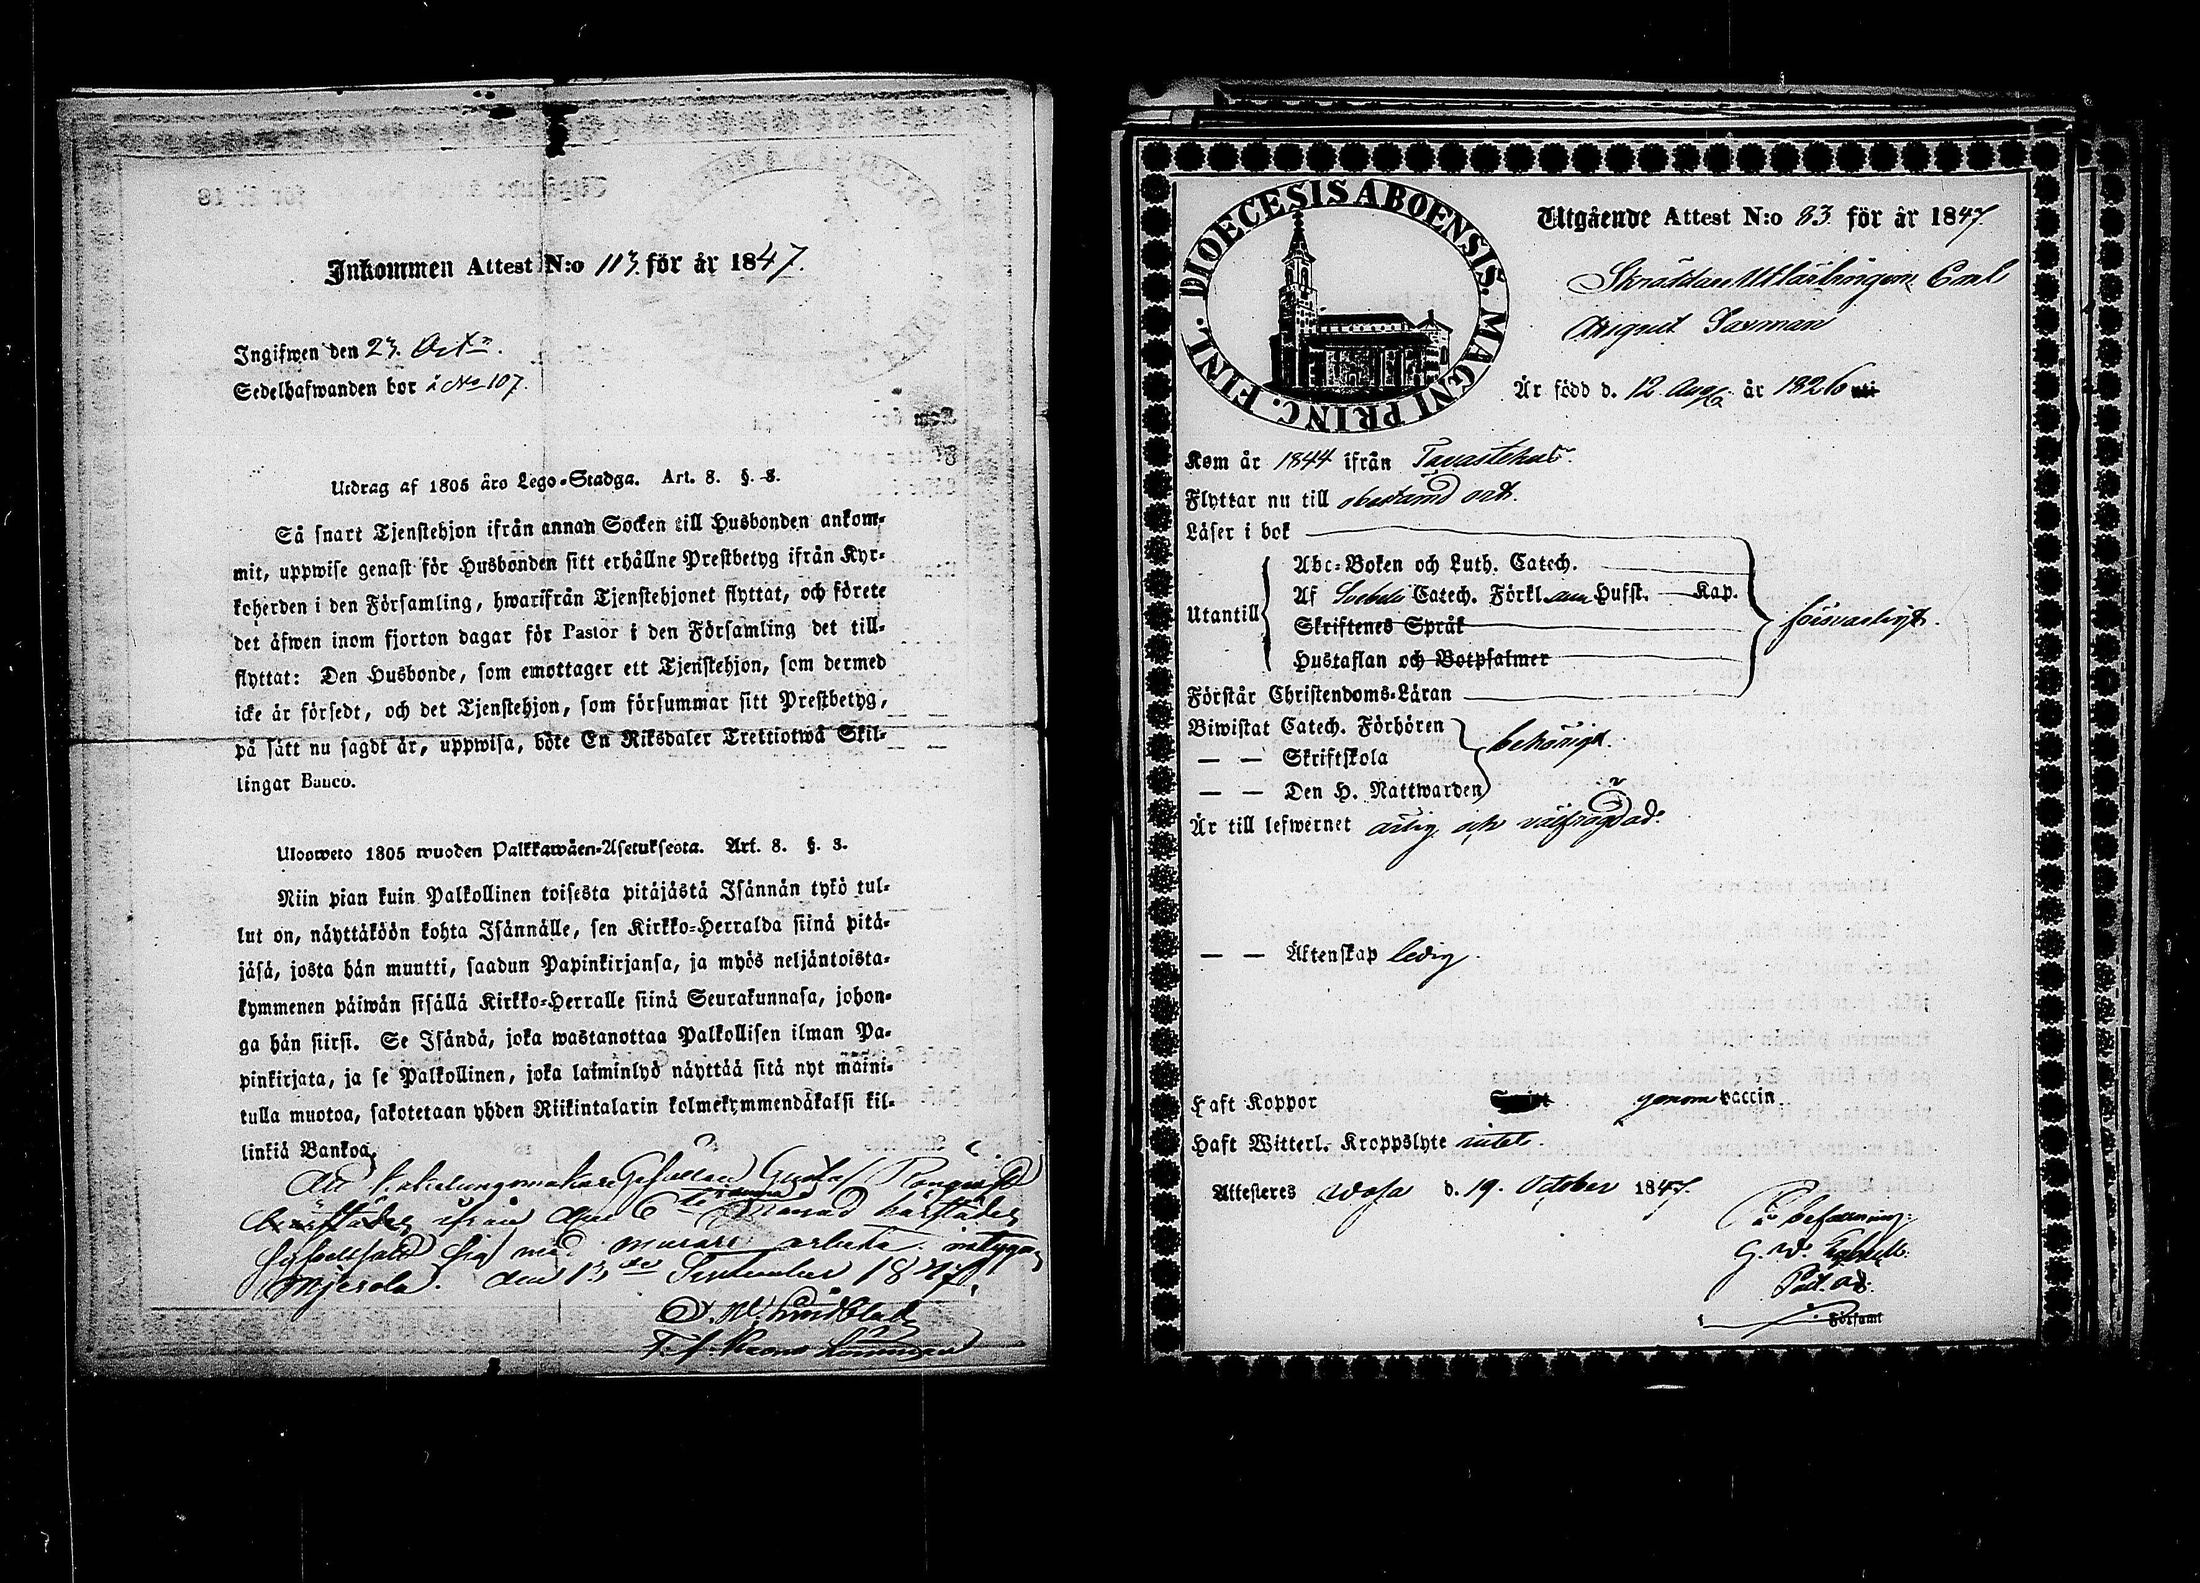 Inkommen Attest N:o 113. för år 1847.
Ingifwen den 23. Oct:
Sedelhafwanden bor i No 107.
Utdrag af 1805 års Lego-Stadga. Art. 8. §. 3.
Så snart Tjenstehjon ifrån annan Socken till Husbonden ankom-
mit, uppwise genast för Husbonden sitt erhållne Prestbetyg ifrån Kyr-
koherden i den Församling, hwarifrån Tjenstehjonet flyttat, och förete
det äfwen inom fjorton dagar för Pastor i den Församling det till-
flyttat: Den Husbonde, som emottager ett Tjenstehjon, som dermed
icke är försedt, och det Tjenstehjon, som försummar sitt Prestbetyg,
på sätt nu sagdt är, uppwisa, böte En Riksdaler Trettiotwå Skil-
lingar Banco.
Ulosweto 1805 wuoden Palkkawäen-Asetuksesta. Art. 8. §. 3.
Niin pian kuin Palkollinen toisesta pitäjästä Isännän tykö tul-
lut on, näyttäköön kohta Isännälle, sen Kirkko-Herralda siinä pitä-
jäsä, josta hän muutti, saadun Papinkirjansa, ja myös neljäntoista-
kymmenen päiwän sisällä Kirkko-Herralle siinä Seurakunnasa, johon-
ga hän siirsi. Se Isändä, joka wastanottaa Palkollisen ilman Pa-
pinkirjata, ja se Palkollinen, joka laiminlyö näyttää sitä nyt maini-
tulla muotoa, sakotetaan yhden Riikintalarin kolmekymmendäkaksi kil-
linkiä Bankoa.
Att kakelungsmakare Gesällen Gustaf
ifrån den 6te månad härstädes
sig med murare arbete intygar
den 13de September 1847.
Lundblad
DIOECESIS ABOENSIS. MAGNI PRINC. FINL.
Utgående Attest N:o 83 för år 1847.
Skräddare Utlärlingen Carl
August Saxman
Är född d. 12 Aug. år 1826
Kom år 1844 ifrån Tavastehus.
Flyttar nu till obestämd ort.
Läser i bok
Utantill
Abc-Boken och Luth. Catech.
Af Svebelii Catech. Förkl. Hufst. Kap.
Skriftenes Språk
Hustaflan och Botpsalmer
försvarligt.
Förstår Christendoms-Läran
Biwistat Catech. Förhören
— — Skriftskola
— — Den H. Nattwarden
behörigt.
Är till lefwernet ärlig och välfrägdad.
— — Äktenskap ledig.
Haft Koppor genom vaccin
Haft Witterl. Kroppslyte intet.
Attesteras Wasa d. 19. October 1847.
På befallning:
G. W.
Past. adj.
Församl